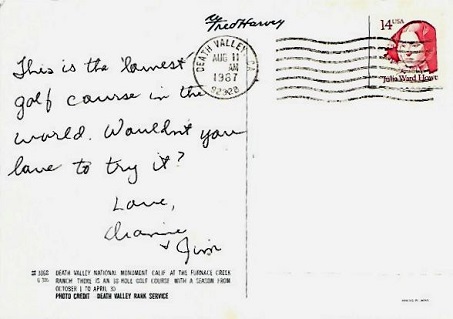 Fred Harvey
14 USA
Julia Ward Howe
DEATH VALLEY, CA
AUG 11
AM
1987
92328
This is the "lowest
golf course in the
world. Wouldn't you
love to try it?
Love,
Dianne
+ Jim
DEATH VALLEY NATIONAL MONUMENT CALIF AT THE FURNACE CREEK
RANCH THERE IS AN 18 HOLE GOLF COURSE WITH A SEASON FROM
OCTOBER 1 TO APRIL 30
PHOTO CREDIT DEATH VALLEY RANK SERVICE